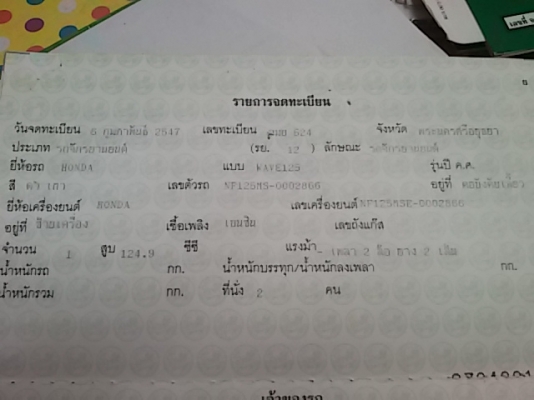 เลขที่
รายการจดทะเบียน
วันจดทะเบียน 6 กุมภาพันธ์ 2547 เลขทะเบียน 524 จังหวัด พระนครศรีอยุธยา
ประเภท รถจักรยานยนต์ (รย. 12 ) ลักษณะ รถจักรยานยนต์
ยี่ห้อรถ HONDA แบบ WAVE125 รุ่นปี ค.ศ.
สี ดำ เทา เลขตัวรถ NF125MS-0002866 อยู่ที่
ยี่ห้อเครื่องยนต์ HONDA เลขเครื่องยนต์ NF125MSE-0002866
อยู่ที่ ซ้ายเครื่อง เชื้อเพลิง เบนซิน เลขถังแก๊ส
จำนวน 1 สูบ 124.9 ซีซี แรงม้า เพลา 2 ล้อ ยาง 2 เส้น
น้ำหนักรถ กก. น้ำหนักบรรทุก/น้ำหนักลงเพลา กก.
น้ำหนักรวม กก. ที่นั่ง 2 คน
เจ้าของรถ